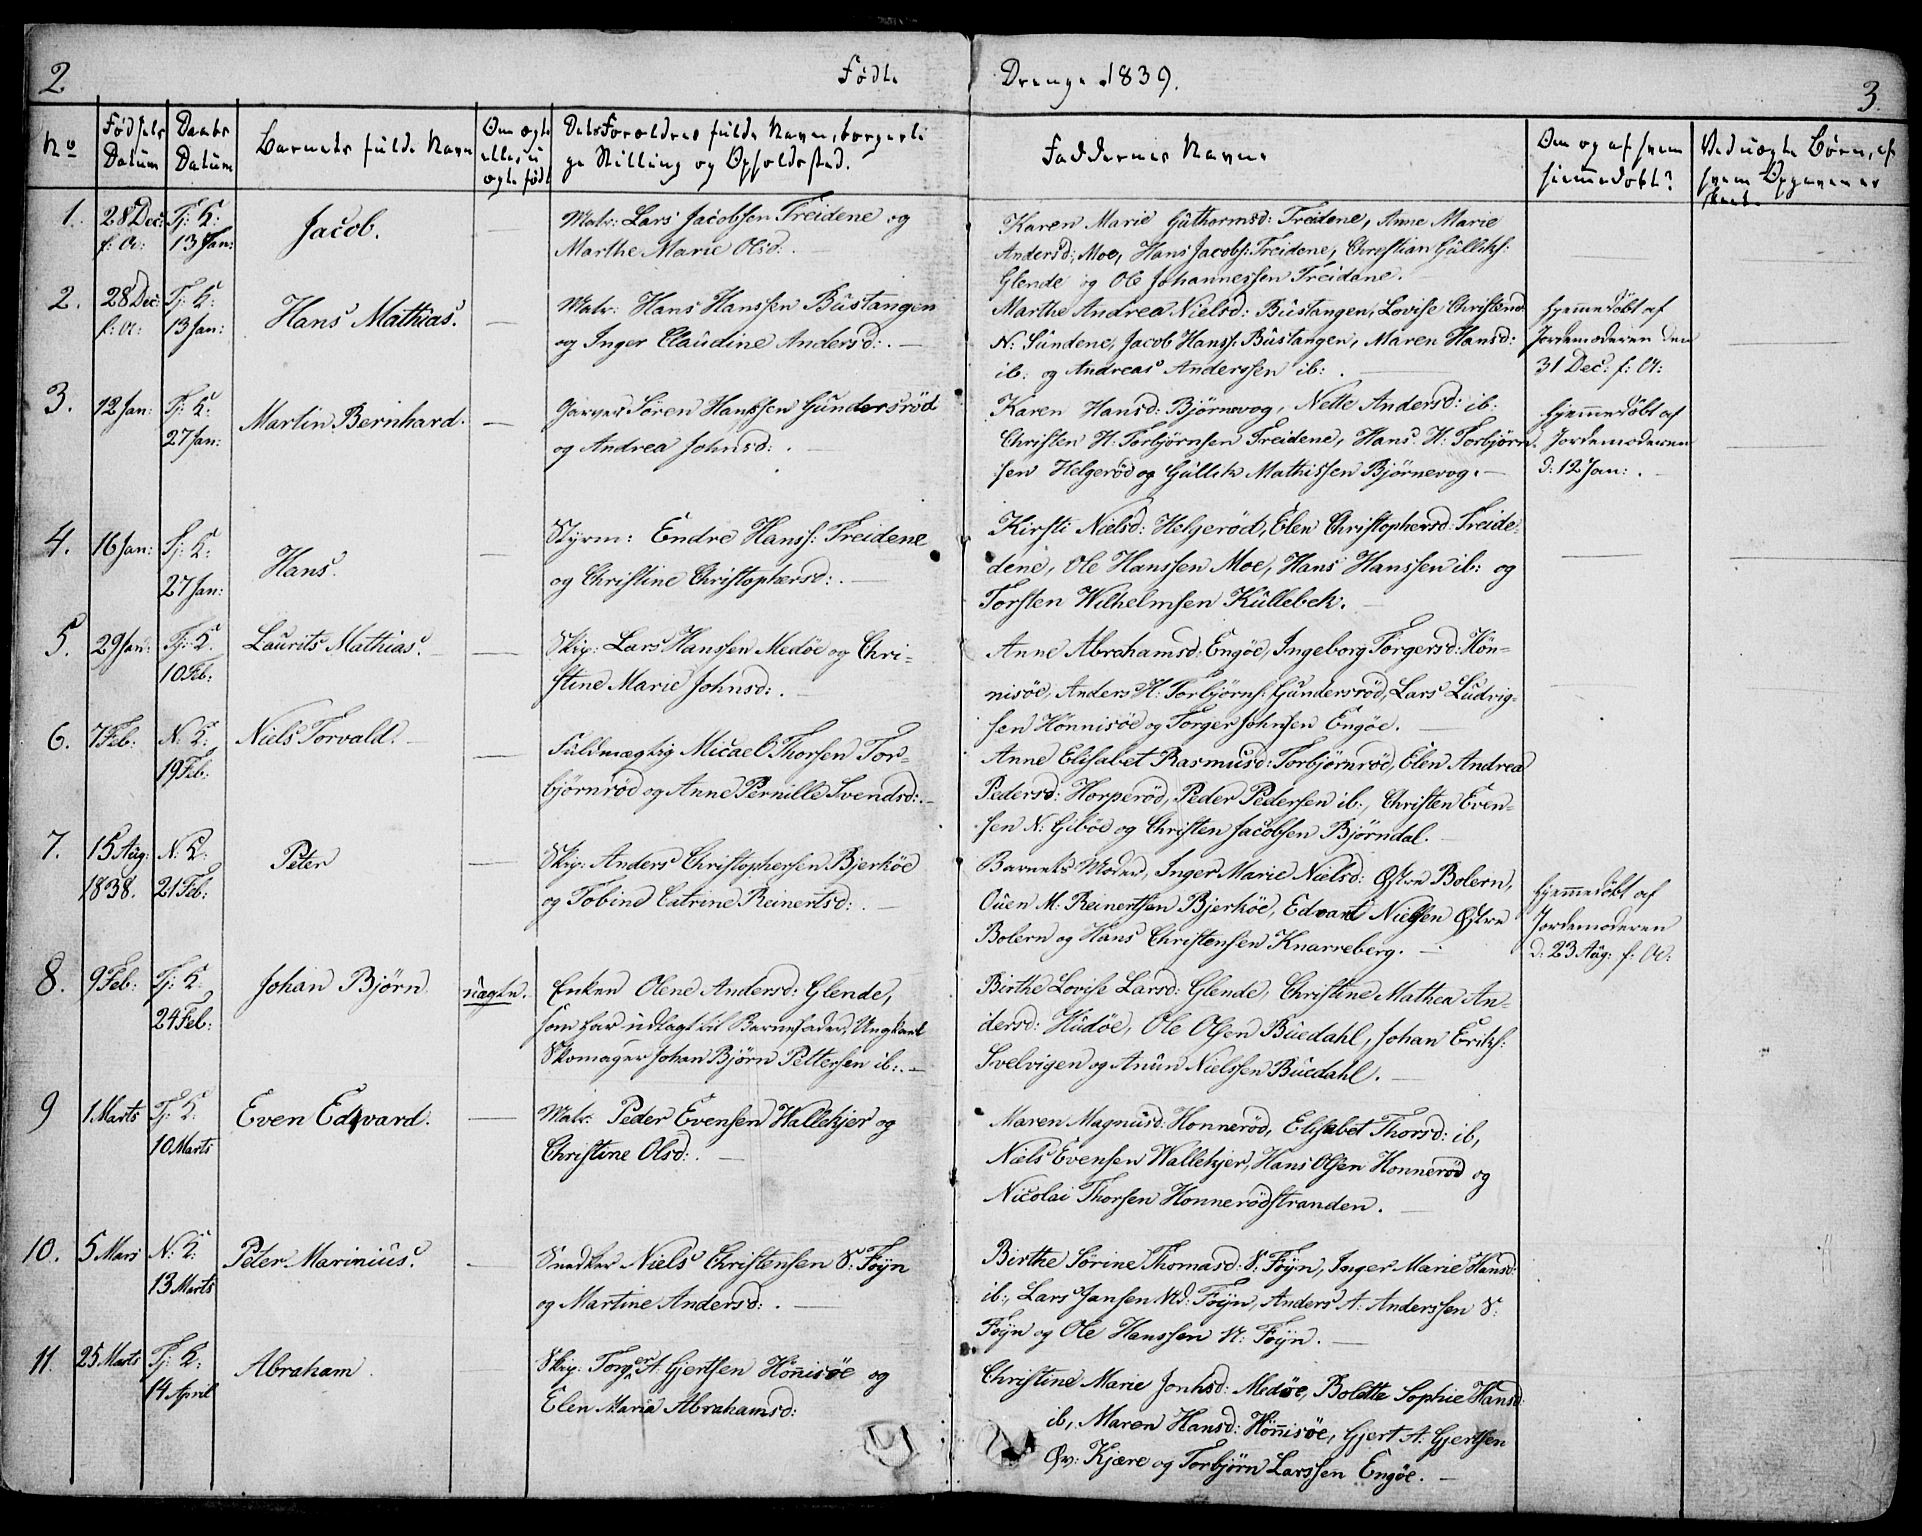 2 Fødte Drenge 1839. 3.
No
Fødsels Datum
Daabs Datum
Barnets fulde Navn
Om ægte eller uægte født
Dets Forældres fulde Navn, borgerlige Stilling og Opholdssted.
Faddernes Navne
Om og af hvem hjemmedøbt?
Ved uægte Børn, af hvem Opgaven er skeet.
1. 28 Dec: f: A: Tj: K: 13 Jan: Jacob. —
Matr: Lars Jacobsen Treidene og
Marthe Marie Olsd:.
Karen Marie Guthormsd: Treidene, Anne Marie
Andersd: Moe, Hans Jacobs: Treidene, Christian Gulliks:
Glende og Ole Johannessen Treidene.
2. 28 Dec: f: A: Tj: K: 13 Jan: Hans Mathias. —
Matr: Hans Hanssen Bustangen
og Inger Claudine Andersd:. —
Marthe Andrea Nielsd: Bustangen, Lovise Christensd:
N: Sundene, Jacob Hanss: Bustangen, Maren Hansd:
ib: og Andreas Anderssen ib:. —
Hjemmedøbt af
Jordemoderen den
31 Dec: f: A:
3. 12 Jan: Tj: K: 27 Jan: Martin Bernhard. —
Garver Sören Hanssen Gundersröd
og Andrea Johnsd:. —
Karen Hansd: Björnevog, Nette Andersd: ib:
Christen H: Torbjörnsen Treidene, Hans H: Torbjörn
sen Helgeröd og Gullik Mathissen Bjørnevog. —
Hjemmedøbt af
Jordemoderen
d: 12 Jan:.
4. 16 Jan: Tj: K: 27 Jan: Hans. —
Styrm: Endre Hanss: Treidene
og Christine Christophersd:. —
Kirsti Nielsd: Helgeröd, Elen Christophersd: Treide-
dene, Ole Hanssen Moe, Hans Hanssen ib: og
Torsten Wilhelmsen Küllebek. —
5. 29 Jan: Tj: K: 10 Feb: Laurits Mathias. —
Skip: Lars Hanssen Medöe og Chri-
stine Marie Johnsd:. —
Anne Abrahamsd: Engöe, Ingeborg Torgersd: Hön-
nisöe, Anders H: Torbjörns: Gundersröd, Lars Ludvig-
sen Hönnisöe og Torger Johnsen Engöe. —
6. 7 Feb: N: K: 19 Feb: Niels Torvald. —
Fuldmægtig Micael Thorsen Tor-
björnröd og Anne Pernille Svendsd:. —
Anne Elisabet Rasmusd: Torbjörnröd, Elen Andrea
Pedersd: Horperöd, Peder Pedersen ib:, Christen Even-
sen N: Giböe og Christen Jacobsen Björndal. —
7. 15 Aug: 1838. N: K: 21 Feb: Peter —
Skip: Anders Christophersen Bjerköe
og Tobine Catrine Reinertsd:. —
Barnets Moder, Inger Marie Nielsd: Østre Bolern,
Ouen M: Reinertsen Bjerköe, Edvard Nielsen Østre
Bolern og Hans Christensen Knarreberg. —
Hjemmedöbt af
Jordemoderen
d: 23 Aug: f: A:
8. 9 Feb: Tj: K: 24 Feb: Johan Björn. uægte.
Enken Olene Andersd: Glende,
som har udlagt til Barnefader, Ungkarl
Skomager Johan Bjørn Pettersen ib:. —
Birthe Lovise Larsd: Glende, Christine Mathea An-
dersd: Hudöe, Ole Olsen Buedahl, Johan Eriks:
Svelvigen og Anun Nielssen Buedahl. —
9 1. Marts Tj: K: 10 Marts Even Edvard. —
Matr: Peder Evensen Wallekjer og
Christine Olsd:. —
Maren Magnusd: Honneröd, Elisabet Thorsd: ib,
Niels Evensen Wallekjer, Hans Olsen Honneröd og
Nicolai Thorsen Honnerödstranden. —
10. 5 Mars N: K: 13 Marts Peter Marinius. —
Snedker Niels Christensen S: Föyn
og Martine Andersd:. —
Birthe Sörine Thomasd: S: Föyn, Inger Marie Hansd:
ib:, Lars Jansen Md: Föyn, Anders A: Anderssen S:
Föyn og Ole Hanssen N: Föyn. —
11. 25 Marts Tj: K: 14 April Abraham. —
Skip: Torger A: Gjertsen Hönnisöe og
Elen Maria Abrahamsd:
Christine Marie Jonhsd: Medöe, Bolette Sophie Hansd:
ib, Maren Hansd: Hönnisöe, Gjert A: Gjertsen
Øv: Kjære og Torbjörn Larssen Engöe. —